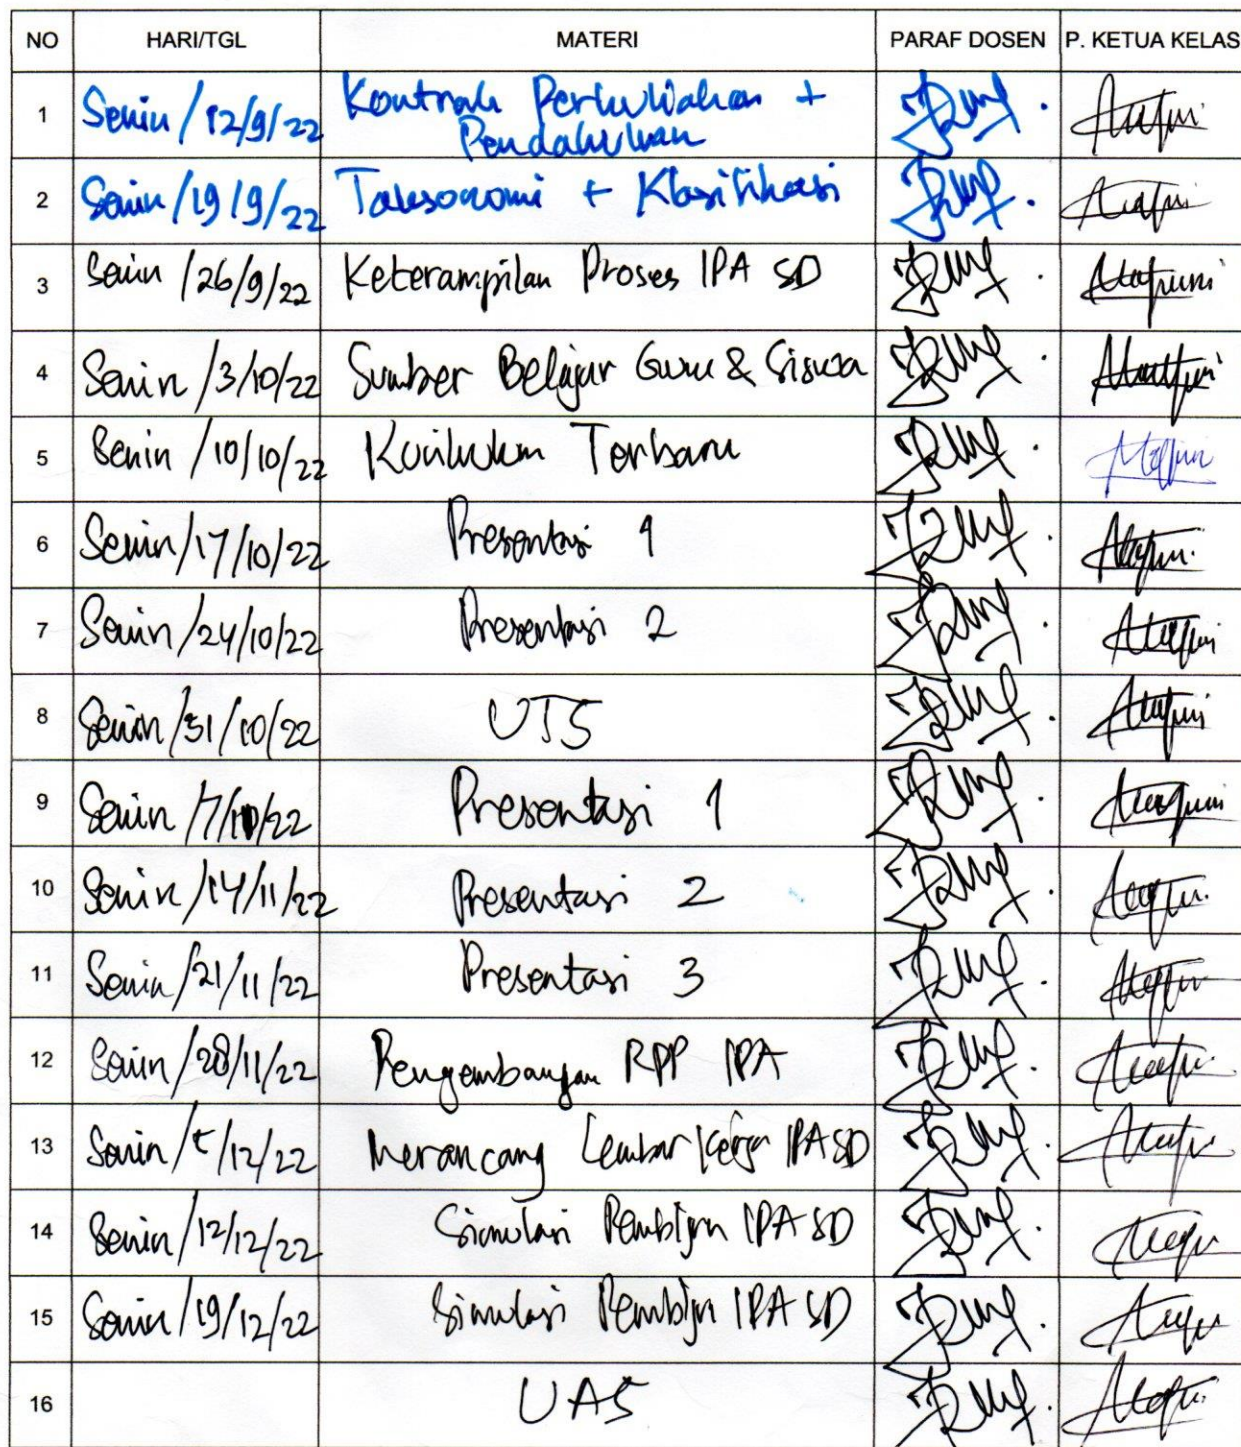 NO HARI/TGL MATERI PARAF DOSEN P. KETUA KELAS
1 Senin / 12/9/22 Kontrak Perkuliahan +
Pendahuluan
2 Senin / 19/9/22 Taksonomi + Klasifikasi
3 Senin / 26/9/22 Keterampilan Proses IPA SD
4 Senin / 3/10/22 Sumber Belajar Guru & Siswa
5 Senin / 10/10/22 Kurikulum Terbaru
6 Senin / 17/10/22 Presentasi 1
7 Senin / 24/10/22 Presentasi 2
8 Senin / 31/10/22 UTS
9 Senin / 7/10/22 Presentasi 1
10 Senin / 14/11/22 Presentasi 2
11 Senin / 21/11/22 Presentasi 3
12 Senin / 28/11/22 Pengembangan RPP IPA
13 Senin / 5/12/22 Merancang Lembar Kerja IPA SD
14 Senin / 12/12/22 Simulasi Pembljrn IPA SD
15 Senin / 19/12/22 Simulasi Pembljrn IPA SD
16 UAS